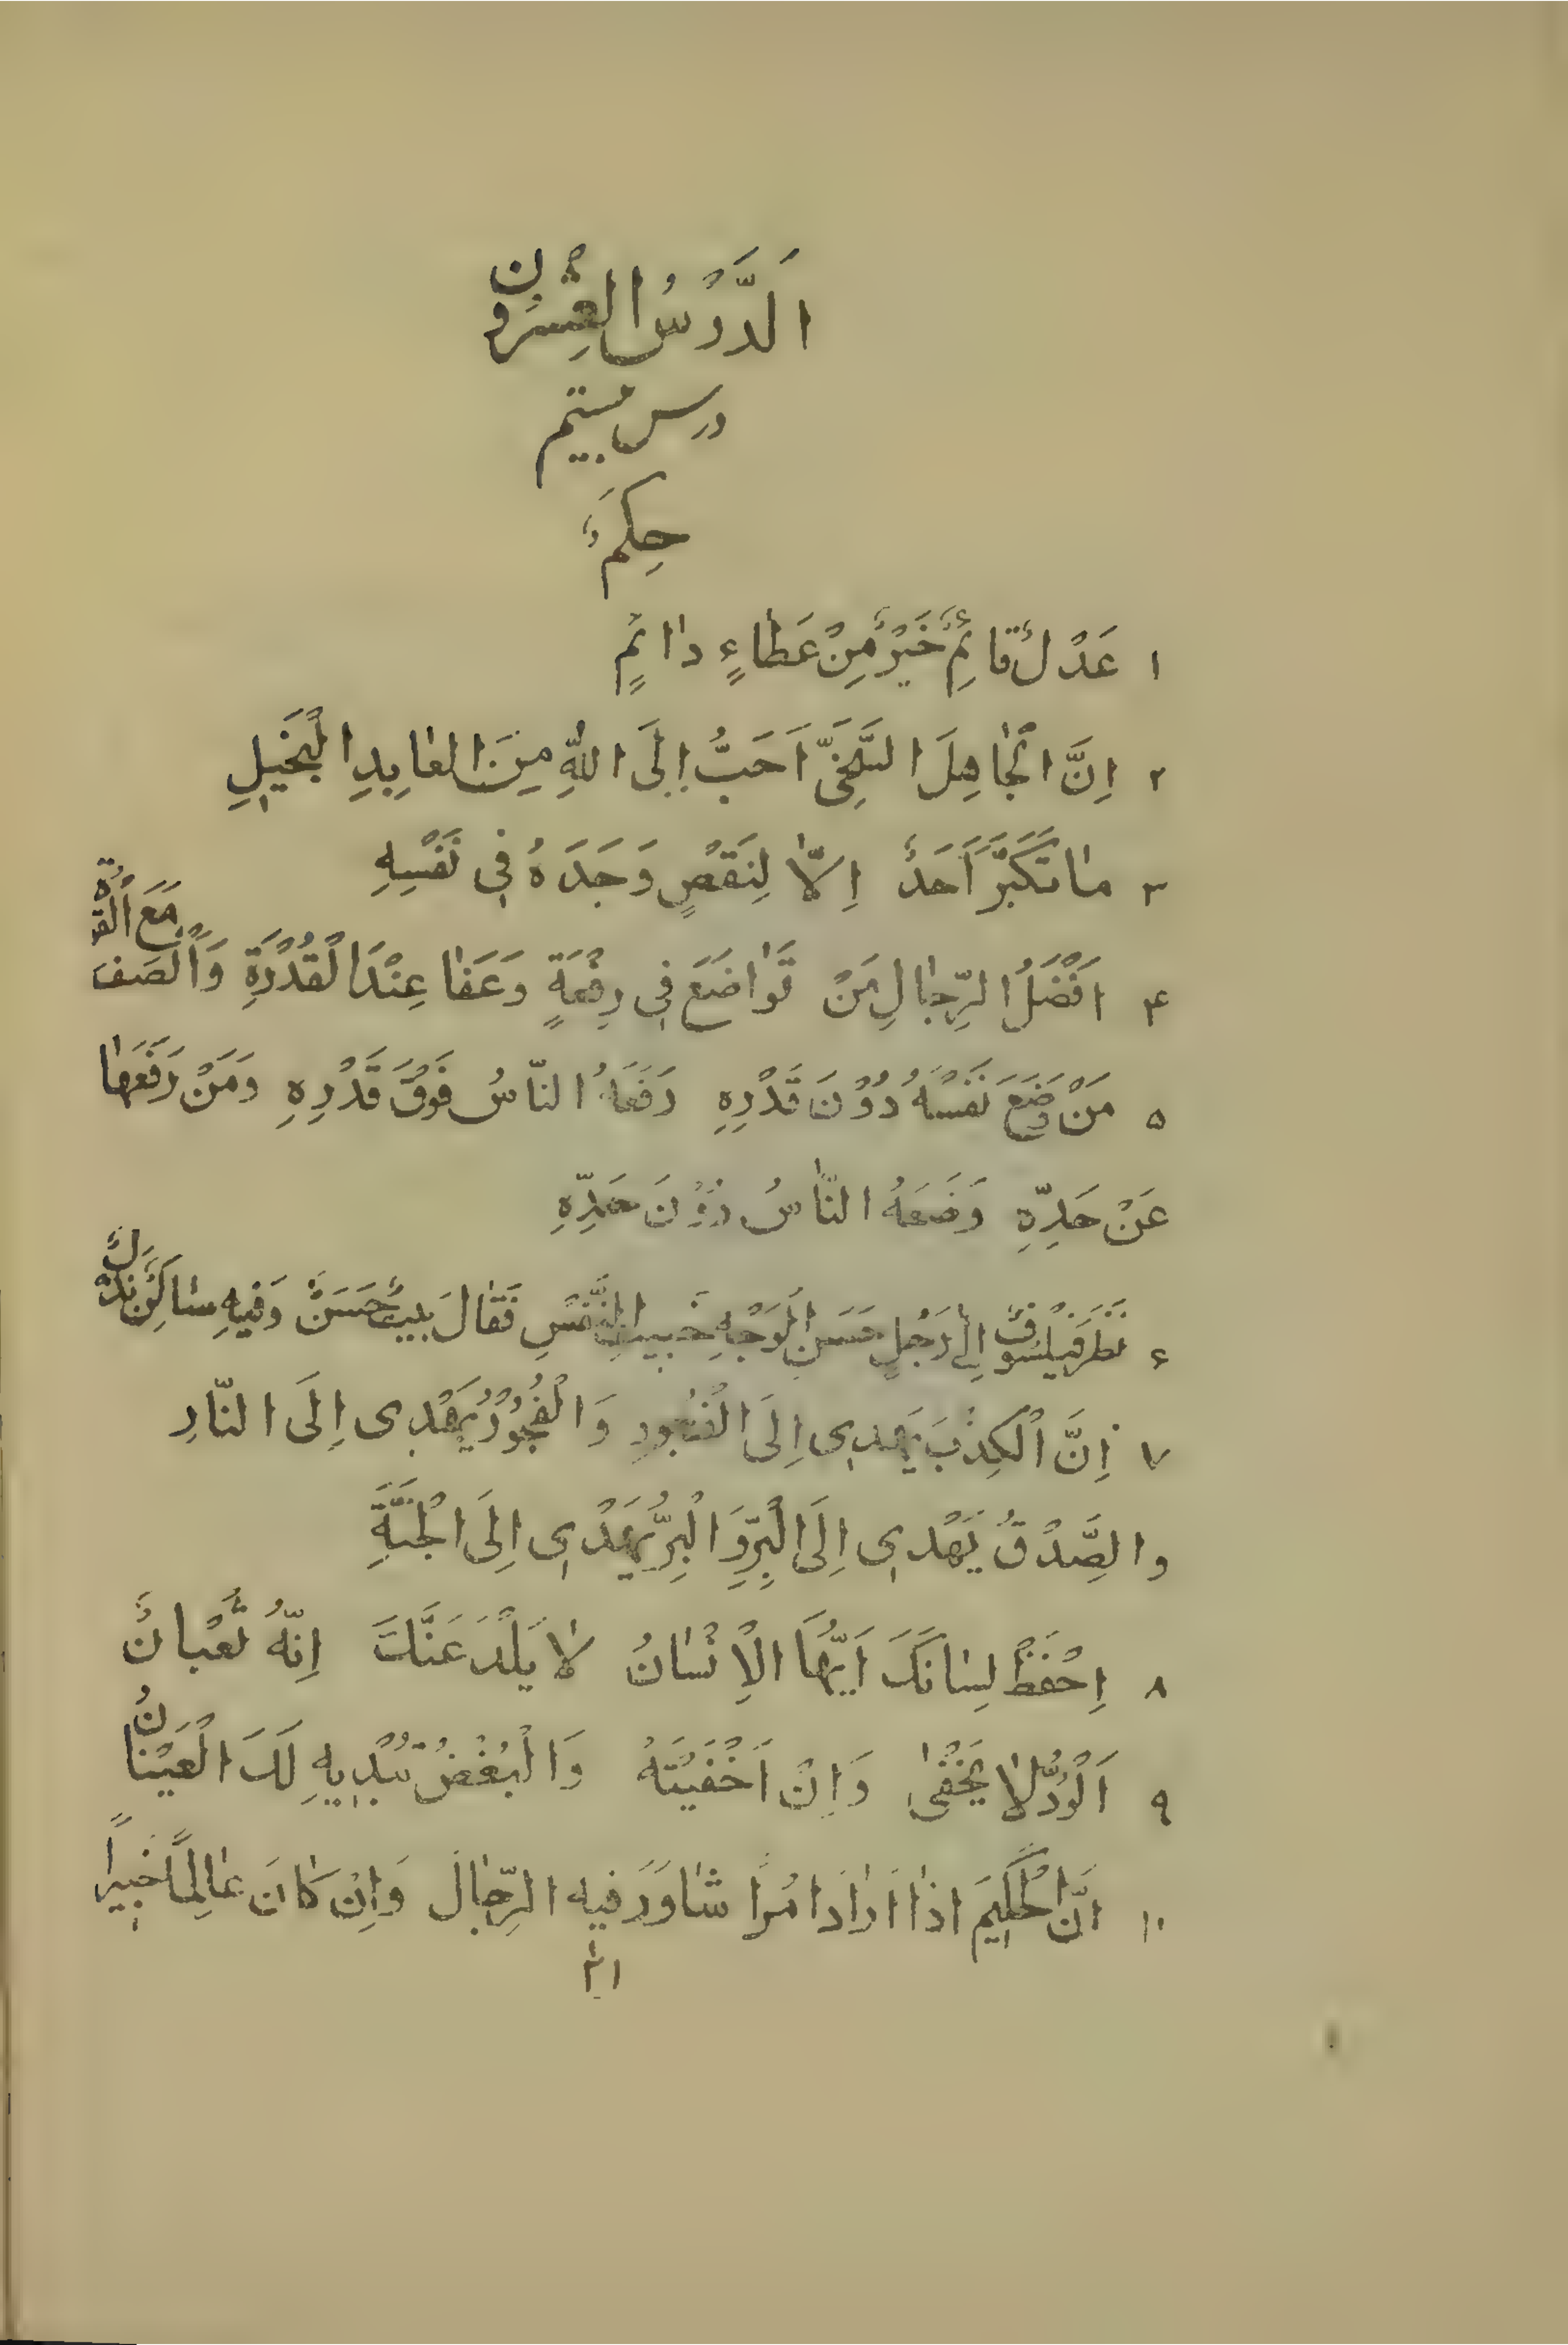 اَلدَّرْسُ الْعِشْرُونَ
درس بیستم
حِكَمٌ
۱ عَدْلٌ قائِمٌ خَيْرٌ مِنْ عَطاءٍ دائمٍ
۲ اِنَّ الْجاهِلَ السَّخِيَّ اَحَبُّ اِلَى اللهِ مِنَ العابِدِ الْبَخيلِ
۳ ماتَكَبَّرَ اَحَدٌ اِلاّ لِنَقْصٍ وَجَدَهُ في نَفْسِهِ
۴ اَفْضَلُ الرِّجالِ مَنْ تَواضَعَ في رِفْعَةٍ وَعَفا عِنْدَ الْقُدْرَةِ وَاَنْصَفَ مَعَ الْقُوَّةِ
۵ مَنْ وَضَعَ نَفْسَهُ دُوْنَ قَدْرِهِ رَفَعَهُ النّاسُ فَوْقَ قَدْرِهِ وَمَنْ رَفَعَها
عَنْ حَدِّهِ وَضَعَهُ النّاسُ دُوْنَ حَدِّهِ
۶ نَظَرَ فَيْلَسُوْفٌ اِلى رَجُلٍ حَسَنِ الْوَجْهِ خَبيثِ النَّفْسِ فَقالَ بيتٌ حَسَنٌ وَفيهِ ساكِنٌ نَذْلٌ
۷ اِنَّ الْكِذْبَ يَهْدِى اِلَى الْفُجُورِ وَالْفُجُوْرُ يَهْدِى اِلَى النّارِ
والصِّدْقُ يَهْدِى اِلَى الْبِرِّ وَالْبِرُّ يَهْدِى اِلَى الْجَنَّةِ
۸ اِحْفَظْ لِسانَكَ اَيُّهَا الْاِنْسانُ لا يَلْدَغَنَّكَ اِنّهُ ثُعْبانٌ
۹ اَلْوُدُّ لا يَخْفىٰ وَاِنْ اَخْفَيْتَهُ وَالْبُغْضُ تُبْدِيهِ لَكَ الْعَيْنانُ
۱۰ اِنّ الْحَكيمَ اذا اَرادَ امْراً شاوَرَ فيهِ الرِّجالَ وَاِنْ كانَ عالِماً خَبيراً